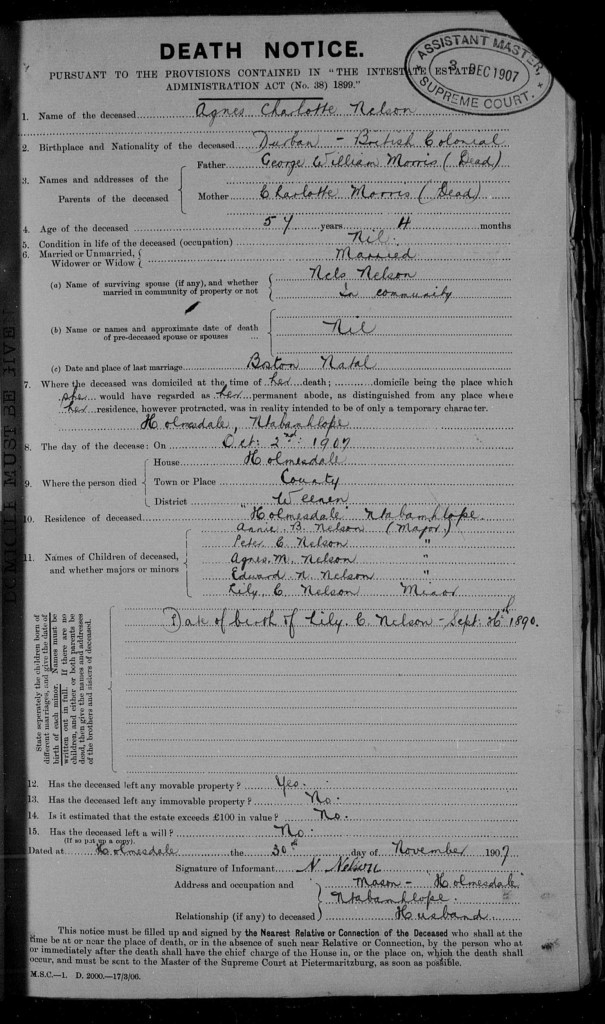 DEATH NOTICE.
ASSISTANT MASTER,
3 DEC 1907
SUPREME COURT.
PURSUANT TO THE PROVISIONS CONTAINED IN "THE INTESTATE ESTATES
ADMINISTRATION ACT (No. 38) 1899."
1. Name of the deceased Agnes Charlotte Nelson
2. Birthplace and Nationality of the deceased Durban - British Colonial
3. Names and addresses of the Parents of the deceased
Father George William Morris (Dead)
Mother Charlotte Morris (Dead)
4. Age of the deceased 57 years 4 months
5. Condition in life of the deceased (occupation) Nil.
6. Married or Unmarried, Widower or Widow Married
(a) Name of surviving spouse (if any), and whether married in community of property or not
Nels Nelson
In community
(b) Name or names and approximate date of death of pre-deceased spouse or spouses ... Nil
(c) Date and place of last marriage Boston Natal
7. Where the deceased was domiciled at the time of her death; domicile being the place which
she would have regarded as her permanent abode, as distinguished from any place where
her residence, however protracted, was in reality intended to be only of a temporary character.
Holmesdale, Ntabamhlope
8. The day of the decease: On Oct: 2nd 1907
9. Where the person died
House Holmesdale
Town or Place County
District Weenen
10. Residence of deceased "Holmesdale" Ntabamhlope.
11. Names of Children of deceased, and whether majors or minors
Annie. B. Nelson (Major.)
Peter C. Nelson "
Agnes. M. Nelson "
Edward N. Nelson "
Lily. C. Nelson Minor
State seperately the children born of
different marriages, and give the date of
birth of each minor. Names must be
written out in full. If there are no
children, and either or both parents be
dead, then give the names and addresses
of the brothers and sisters of deceased.
Date of birth of Lily. C. Nelson - Sept: 4th 1890.
12. Has the deceased left any movable property? Yes.
13. Has the deceased left any immovable property? No.
14. Is it estimated that the estate exceeds £100 in value? No.
15. Has the deceased left a will? No.
(If so put up a copy).
Dated at Holmesdale the 30th day of November 1907
Signature of Informant N. Nelson
Address and occupation and Mason - "Holmesdale"
Ntabamhlope.
Relationship (if any) to deceased Husband
This notice must be filled up and signed by the Nearest Relative or Connection of the Deceased who shall at the
time be at or near the place of death, or in the absence of such near Relative or Connection, by the person who at
or immediately after the death shall have the chief charge of the House in, or the place on, which the death shall
occur, and must be sent to the Master of the Supreme Court at Pietermaritzburg, as soon as possible.
M.S.C.—1. D. 2000.—17/3/06.